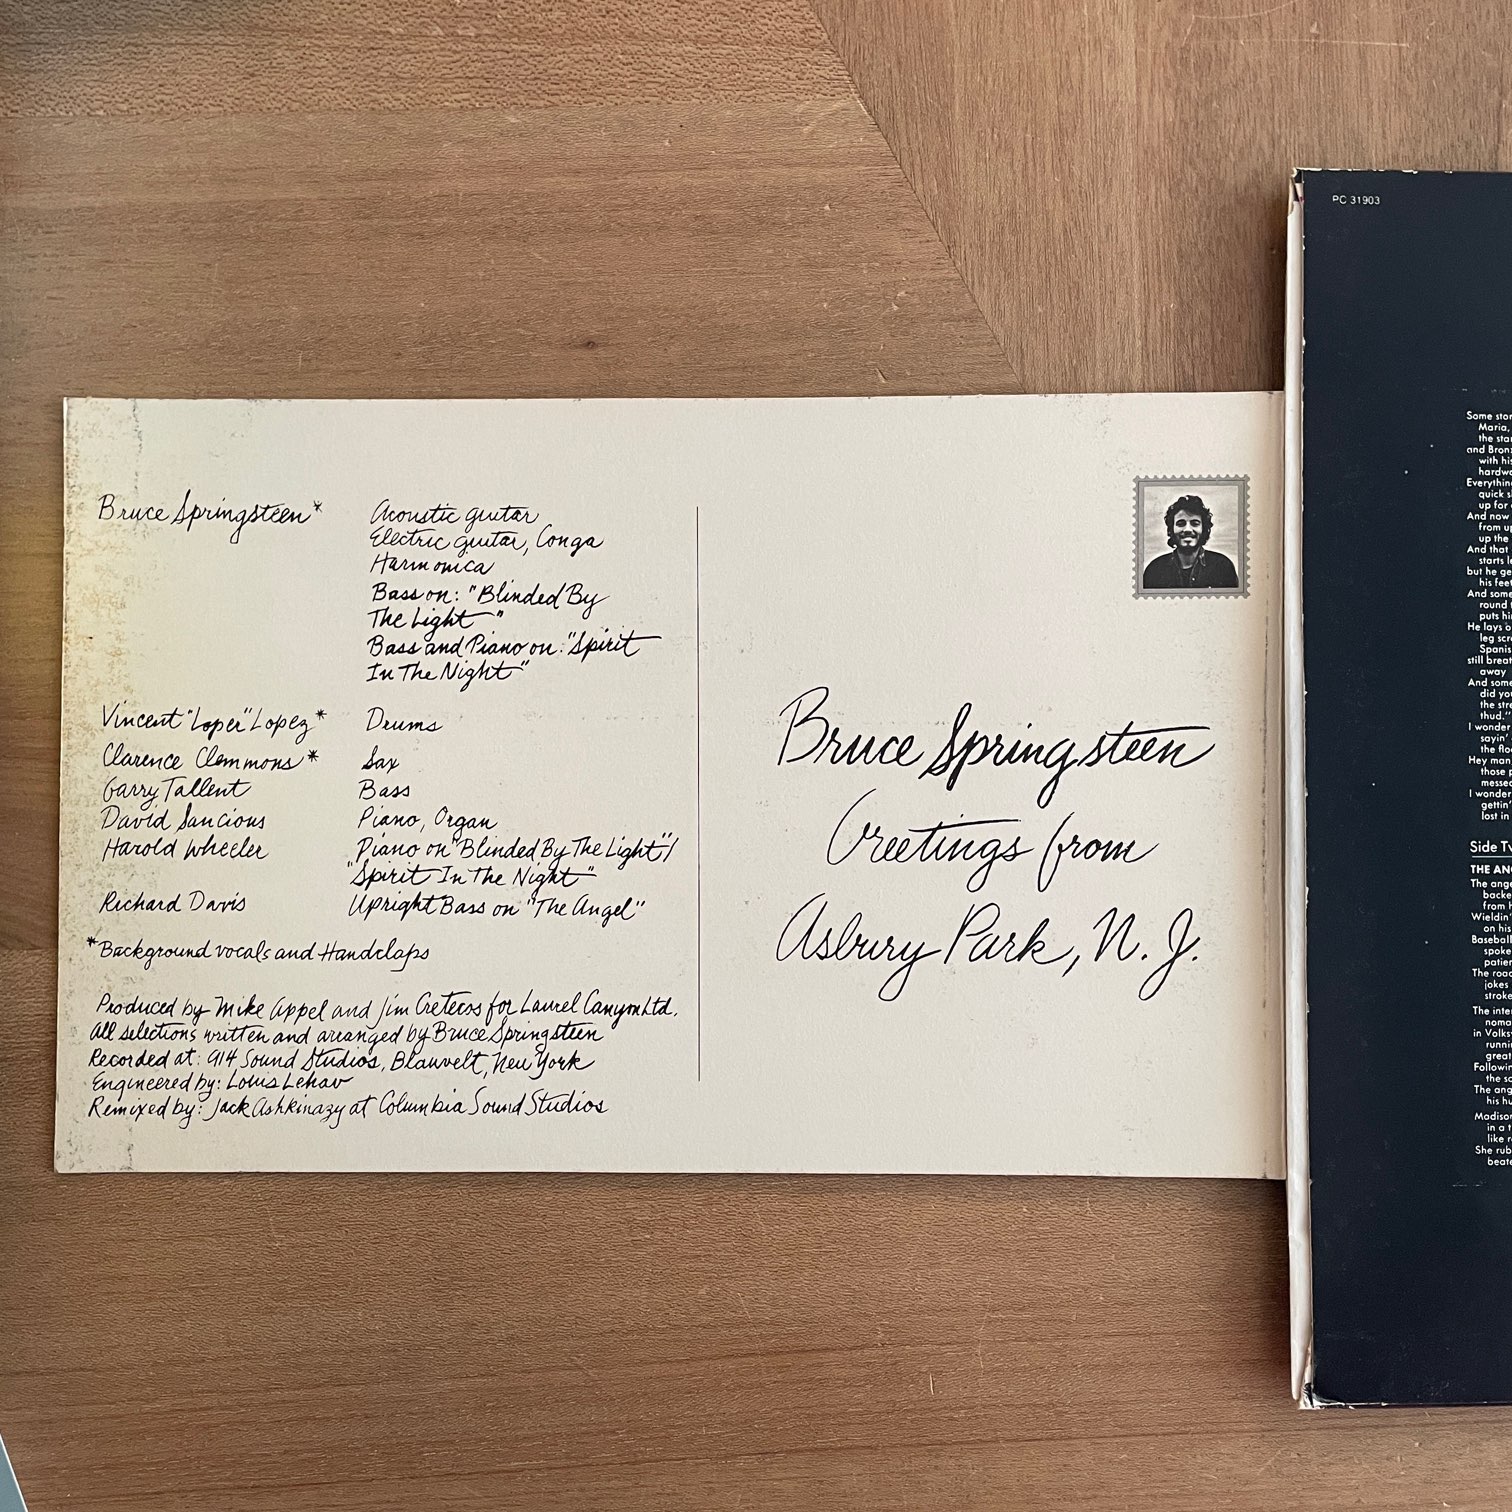 Bruce Springsteen* Acoustic guitar
Electric guitar, Conga
Harmonica
Bass on: "Blinded By
The Light"
Bass and Piano on: "Spirit
In The Night"
Vincent "Loper" Lopez* Drums
Clarence Clemmons* Sax
Garry Tallent Bass
David Sancious Piano, Organ
Harold Wheeler Piano on "Blinded By The Light"/
"Spirit In The Night"
Richard Davis Upright Bass on "The Angel"
*Background vocals and Handclaps
Produced by Mike Appel and Jim Cretecos for Laurel Canyon Ltd.
All selections written and arranged by Bruce Springsteen
Recorded at: 914 Sound Studios, Blauvelt, New York
Engineered by: Louis Lehav
Remixed by: Jack Ashkinazy at Columbia Sound Studios
Bruce Springsteen
Greetings from
Asbury Park, N. J.
PC 31903
Some
Maria,
the
and
with
hardw
Everything
quick
up for
And now
from up
up the
And that
starts
but he
his feet
And some
round
puts
He lays
leg
Spanis
still
away
And some
did you
the
thud."
I wonder
sayin'
the
Hey man,
those
messed
I wonder
gettin'
lost in
Side
THE
The
backe
from
Wieldin'
on his
Baseball
spoke
patien
The
jokes
stroke
The
noma
in
runni
great
Followin
the
The
his
Madison
in a
like
She rub
beate